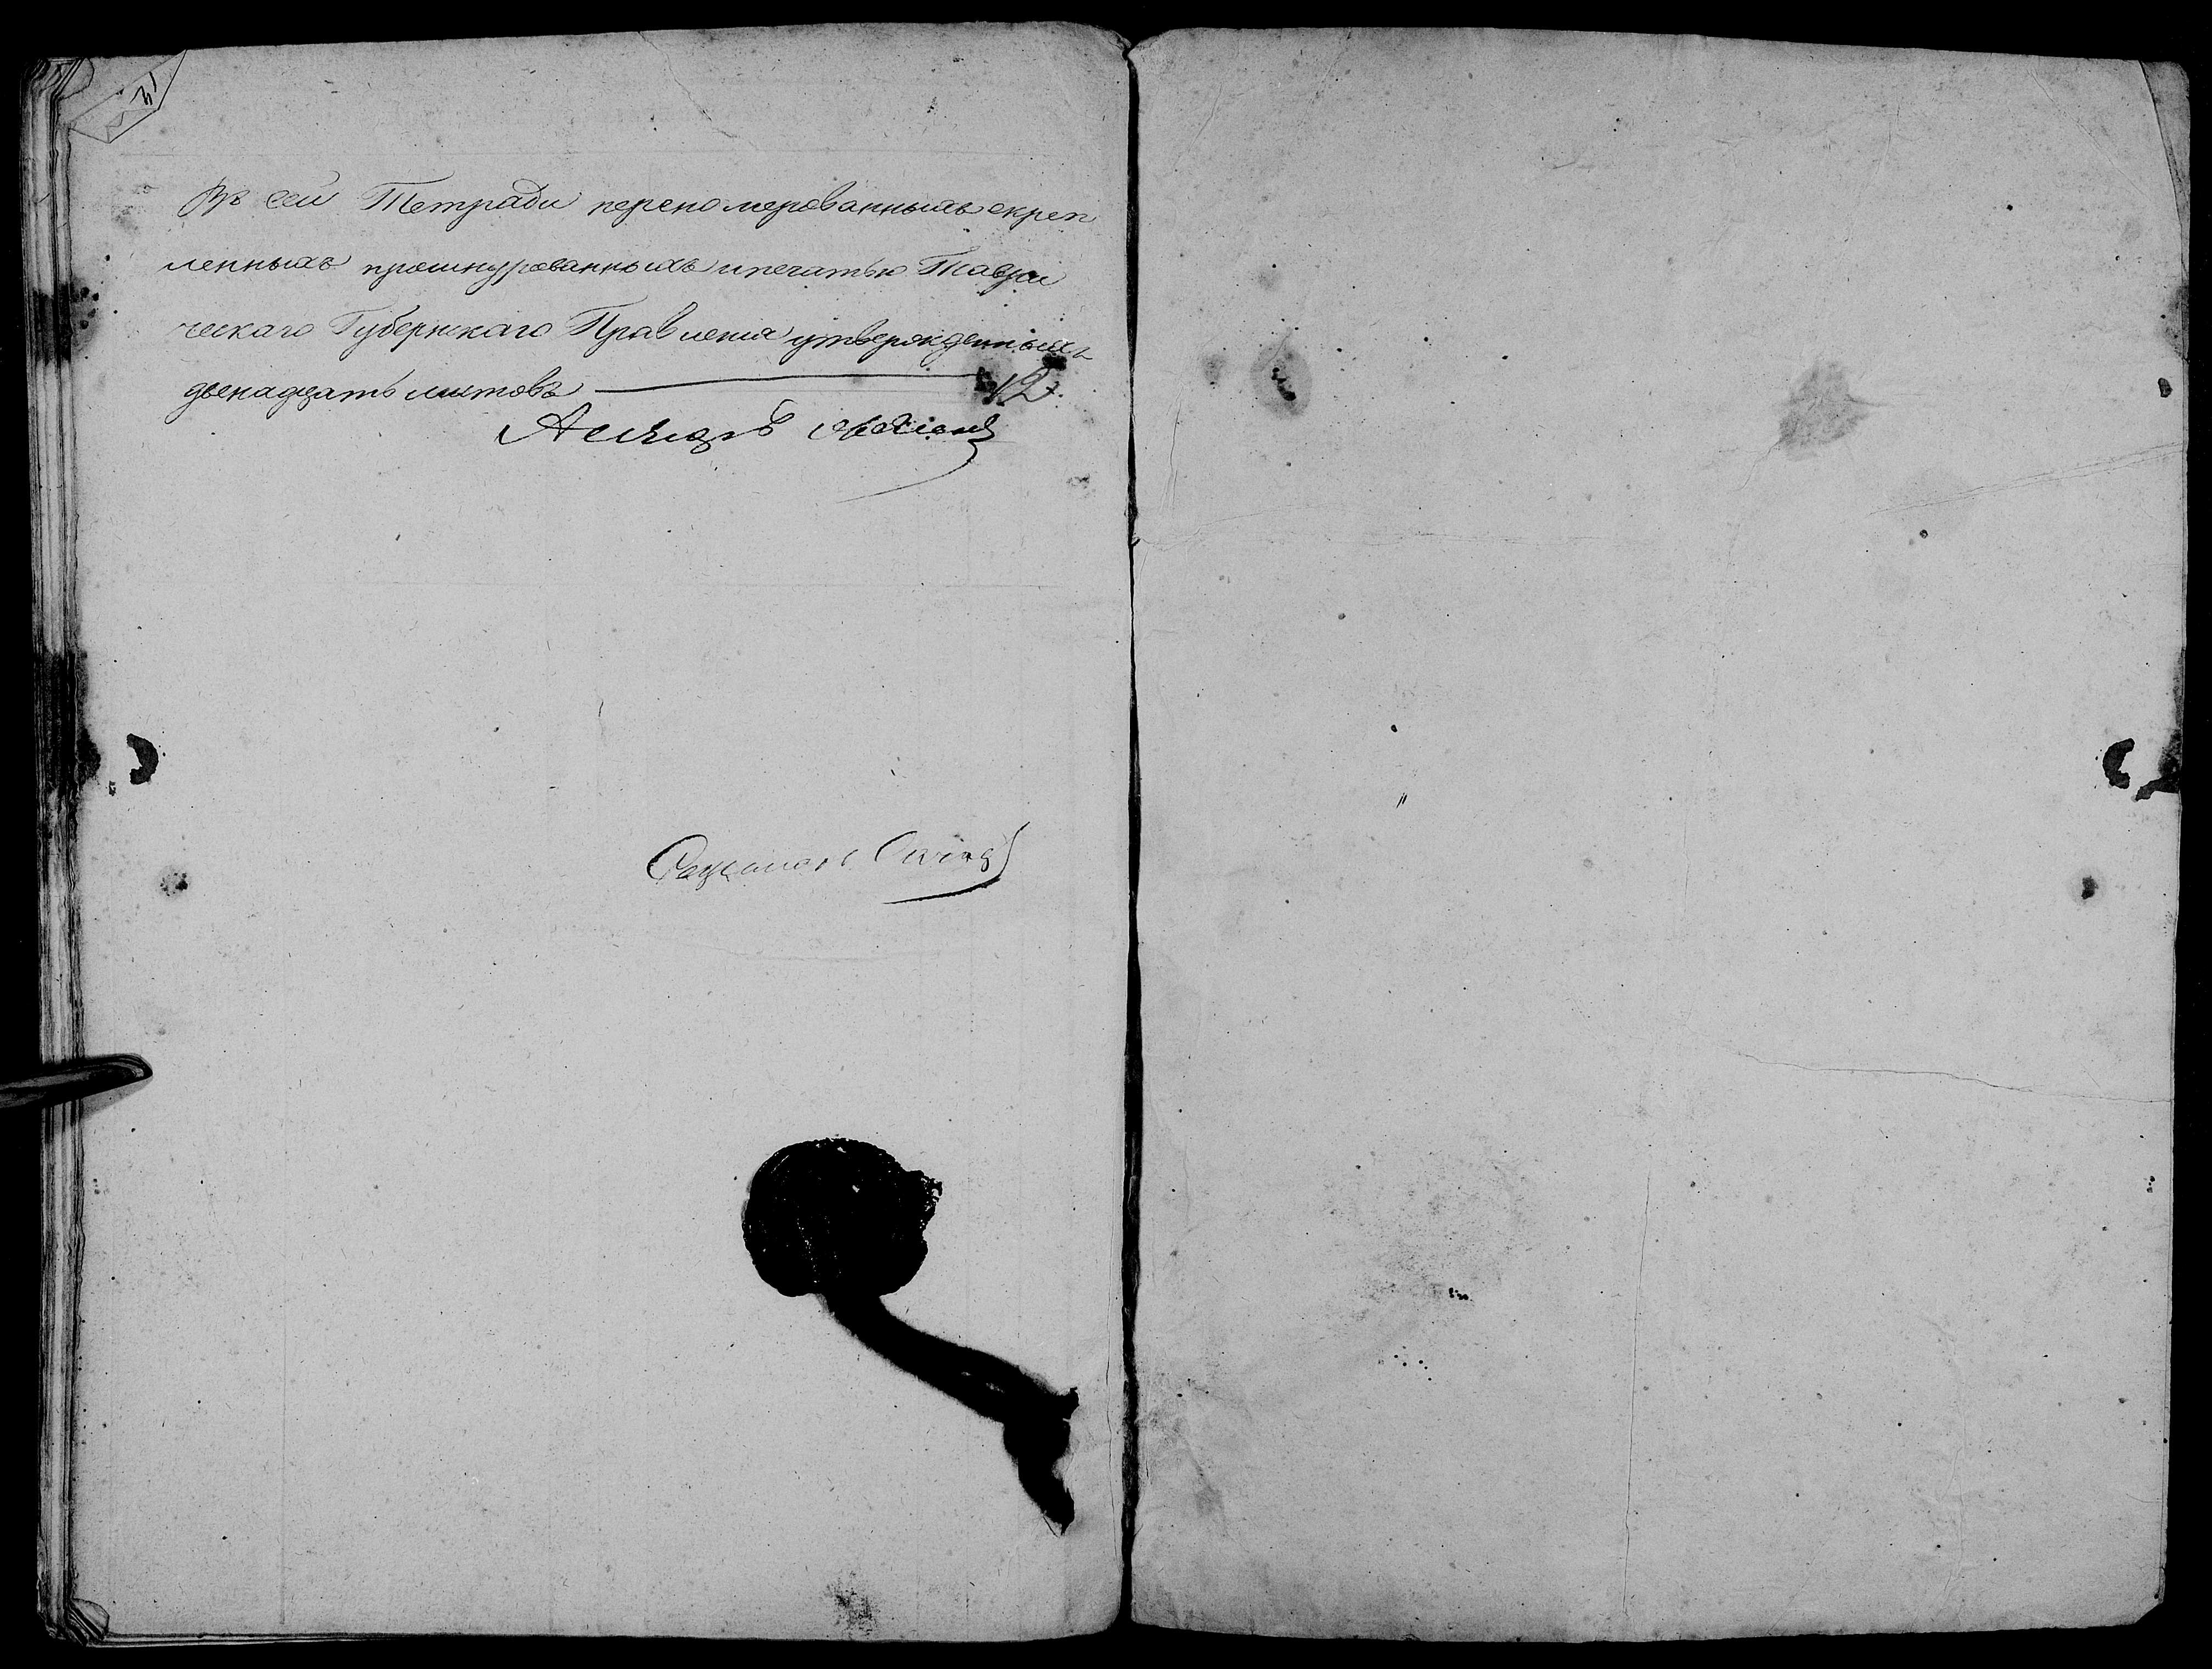 Въ сей Тетради переномерованныхъ скреп
ленныхъ прошнурованныхъ и печатью Таври
ческаго Губернскаго Правления утвержденныхъ
двенадцать листовъ 12.